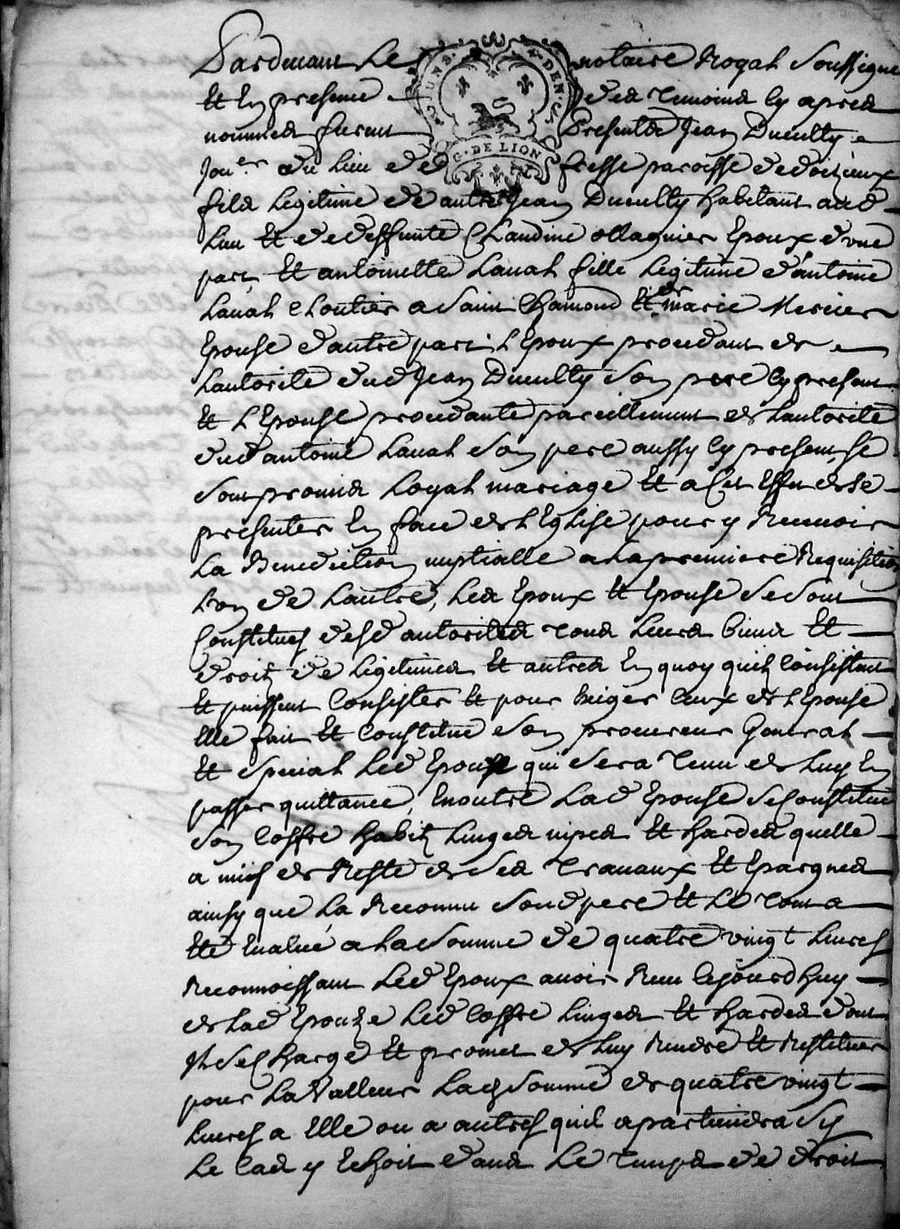 Pardevant Le notaire Royal soussigne
Et En presence des temoins cy apres
nommes furent Presents Jean Dueully
Jou.er du Lieu de fresse paroisse de doizieux
fils Legitime de autre Jean Dueully habitant aud
Lieu Et de deffunte Claudine ollagnier Epoux d'une
part, Et antoinette Laual fille Legitime d'antoine
Laual Cloutier a Saint Chamond Et de marie Mercier
Epouse d'autre part, L'Epoux procedant de
Lautorité dud Jean Dueully son pere cy present
Et L'Epouse procedante pareillement de Lautorité
dud antoine Laual son pere aussy cy present se
sont promis Loyal mariage Et a Cet Effet de se
presenter En face de L'Eglise pour y Recevoir
La Benediction nuptialle a La premiere Requisition
L'un de Lautre, Les Epoux Et Epouse se sont
Constitues desd autorites tous Leurs biens Et
droits de Legitimes Et autres En quoy quils Consistent
Et puissent Consister Et pour Exiger Ceux de L'Epouse
Elle fait Et Constitue son procureur General
Et special Led Epoux qui sera tenu de Luy En
passer quittance, Enoutre Lad Epouse se Constitue
son Coffre habits Linges nipes Et hardes quelle
a mis de Reste de ses travaux Et Epargnes
ainsy que La Reconnu sond pere Et Le tout a
Eté Evalué a La somme de quatre vingt Livres
Reconnoissant Led Epoux avoir Reçu Cejourdhuy
de Lad Epouze Led Coffre Linges Et hardes dont
Il se Charge Et promet de Luy Rendre Et Restituer
pour La Valleur Lad somme de quatre vingt
Livres a Elle ou a autres quil apartiendra sy
Le Cas y Echoit dans Le temps de droit
G. DE LION